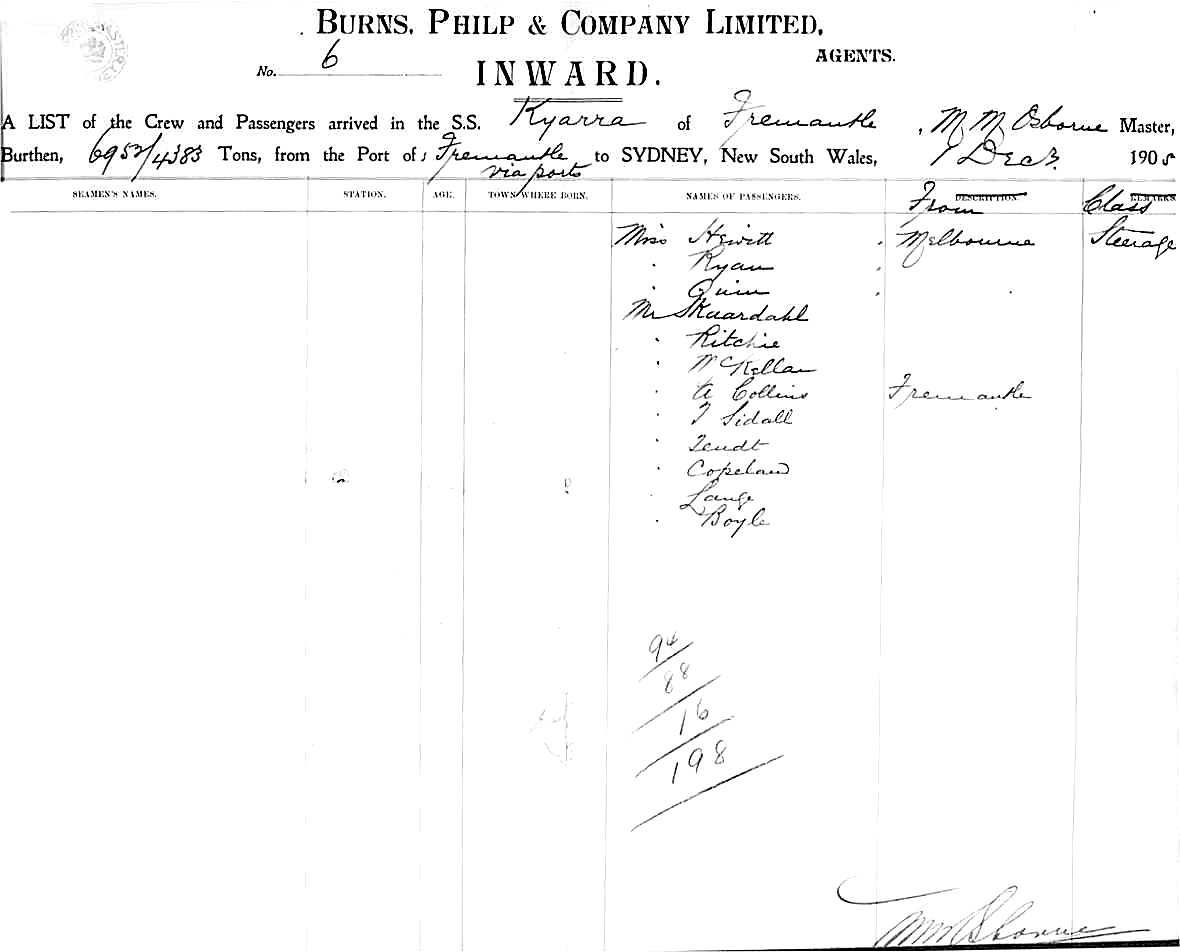 BURNS, PHILP & COMPANY LIMITED,
AGENTS.
No. 6
INWARD.
A LIST of the Crew and Passengers arrived in the S.S. Kyarra of Fremantle, M M Osborne Master,
Burthen, 6952/4383 Tons, from the Port of Fremantle to SYDNEY, New South Wales, Dec 1905
via ports
SEAMEN'S NAMES. STATION. AGE. TOWN WHERE BORN. NAMES OF PASSENGERS. DESCRIPTION. From REMARKS Class
Miss Hewitt . Melbourne Steerage
" Ryan
" Quinn
Mr Skaardahl
" Ritchie
" McKellan
" A Collins Fremantle
" T Sidall
" Zendt
" Copeland
" Lange
" Boyle
94
88
16
198